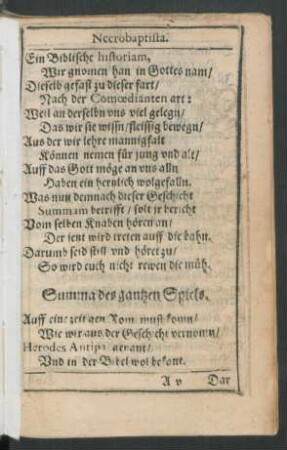 Necrobaptista.
Ein Biblische historiam,
Wir gnomen han in Gottes nam/
Dieselb gefast zu dieser fart/
Nach der Comœdianten art:
Weil an derselbn vns viel gelegn/
Das wir sie wissn/fleissig bewegn/
Aus der wir lehre mannigfalt
Können nemen für jung vnd alt/
Auff das Gott möge an vns alln
Haben ein herrlich wolgefalln.
Was nun demnach dieser Geschicht
Summam betrifft / solt jr bericht
Vom selben Knaben hören an/
Der jent wird treten auff die bahn.
Darumb seid still vnd höret zu/
So wird euch nicht rewen die müh.
Summa des gantzen Spiels.
Auff eine zeit gen Rom must komn/
Wie wir aus der Geschicht vernomn/
Herodes Antipa genant/
Vnd in der Bibel wol bekant.
A v Dar